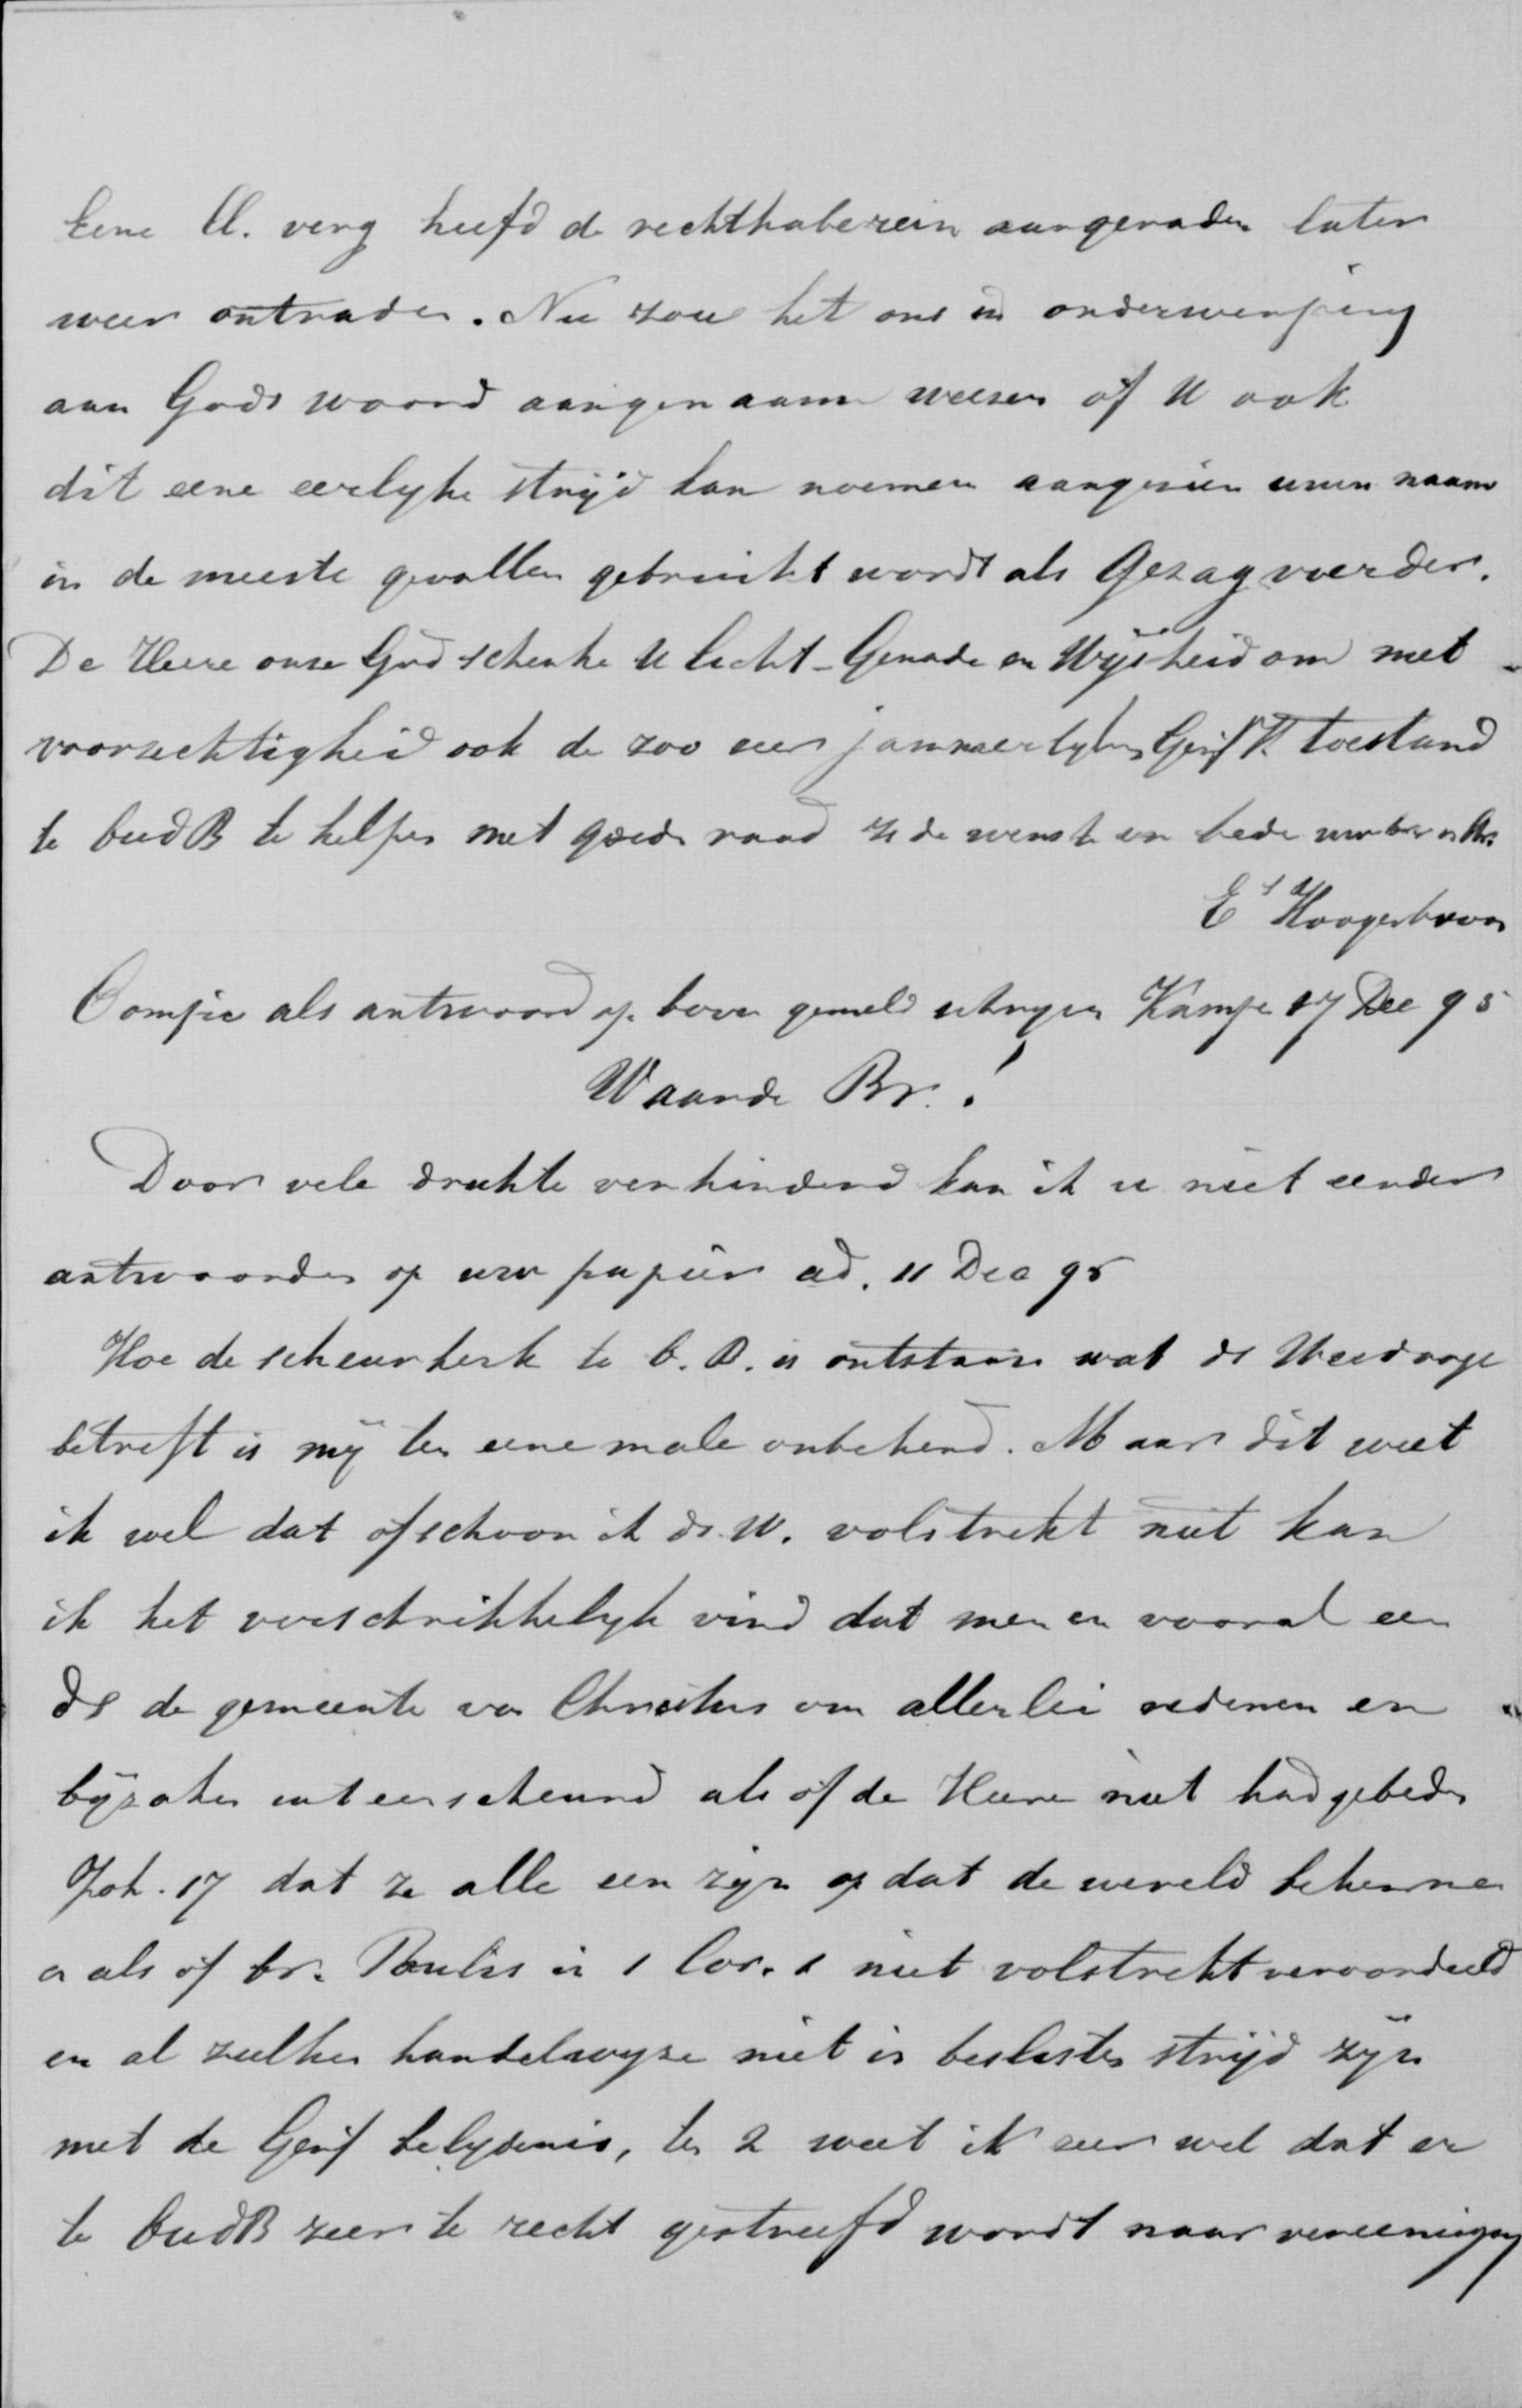 Eene Cl. verg heefd de rechthaberein aangeraden laten
weer ontraden. Nu zou het ons in onderwerping
aan Gods woord aangenaam weesen of U ook
dit eene eerlyke strijd kan noemen aangesien uwen naam
in de meeste gevallen gebruikt wordt als Gezagvoerder.
De Heere onse God schenke U licht - Genade en Wijsheid om met
voorsechtigheid ook de zoo zeer jammerlyken Geriff. toestand
te OudB te helpen met goede raad is de wensch en bede uw br
E Hoogerbroor
Coompie als antwoord op boven gemeld schryven Kampe 17 Dec 95
Waarde Br.!
Door vele drukte verhinderd kan ik u niet eerder
antwoorden op uw papier ad. 11 Dec 95
Hoe de scheurkerk te O.B. is ontstaan wat ds
betreft is mij ten eenemale onbekend. Maar dit weet
ik wel dat ofschoon ik ds. W. volstrekt niet kan
ik het verschrikkelyk vind dat men en vooral een
ds de gemeente van Christus om allerlei redenen en
bijzaken uit een scheurd als of de Heere niet had gebeden
Joh. 17 dat ze alle een zijn op dat de wereld bekenne
en als of br. Paulus in 1 Cor. 1 niet volstrekt veroordeeld
en al zulken handelswyze niet in beslisten strijd zijn
met de Geriff belydenis, ten 2 weet ik zeer wel dat er
te OudB zeer te recht gestreefd wordt naar vereeniging